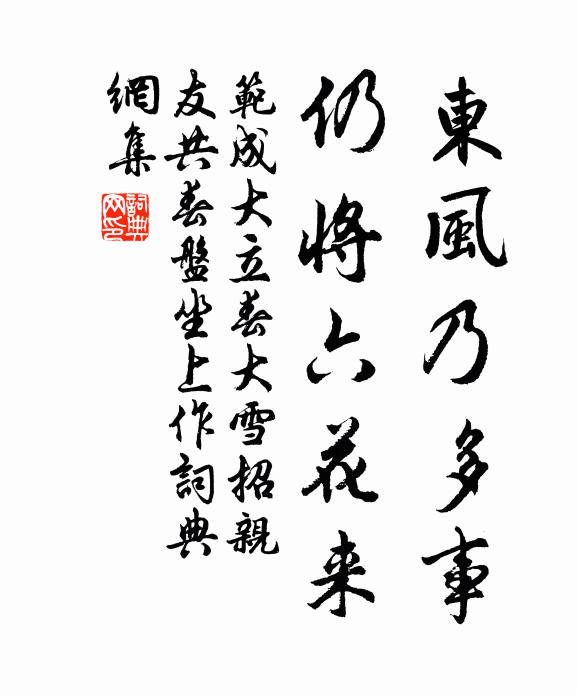 東風乃多事
仍將六花来
範成大立春大雪招親
友共春盤坐上作詞典
網集
詞典
网印